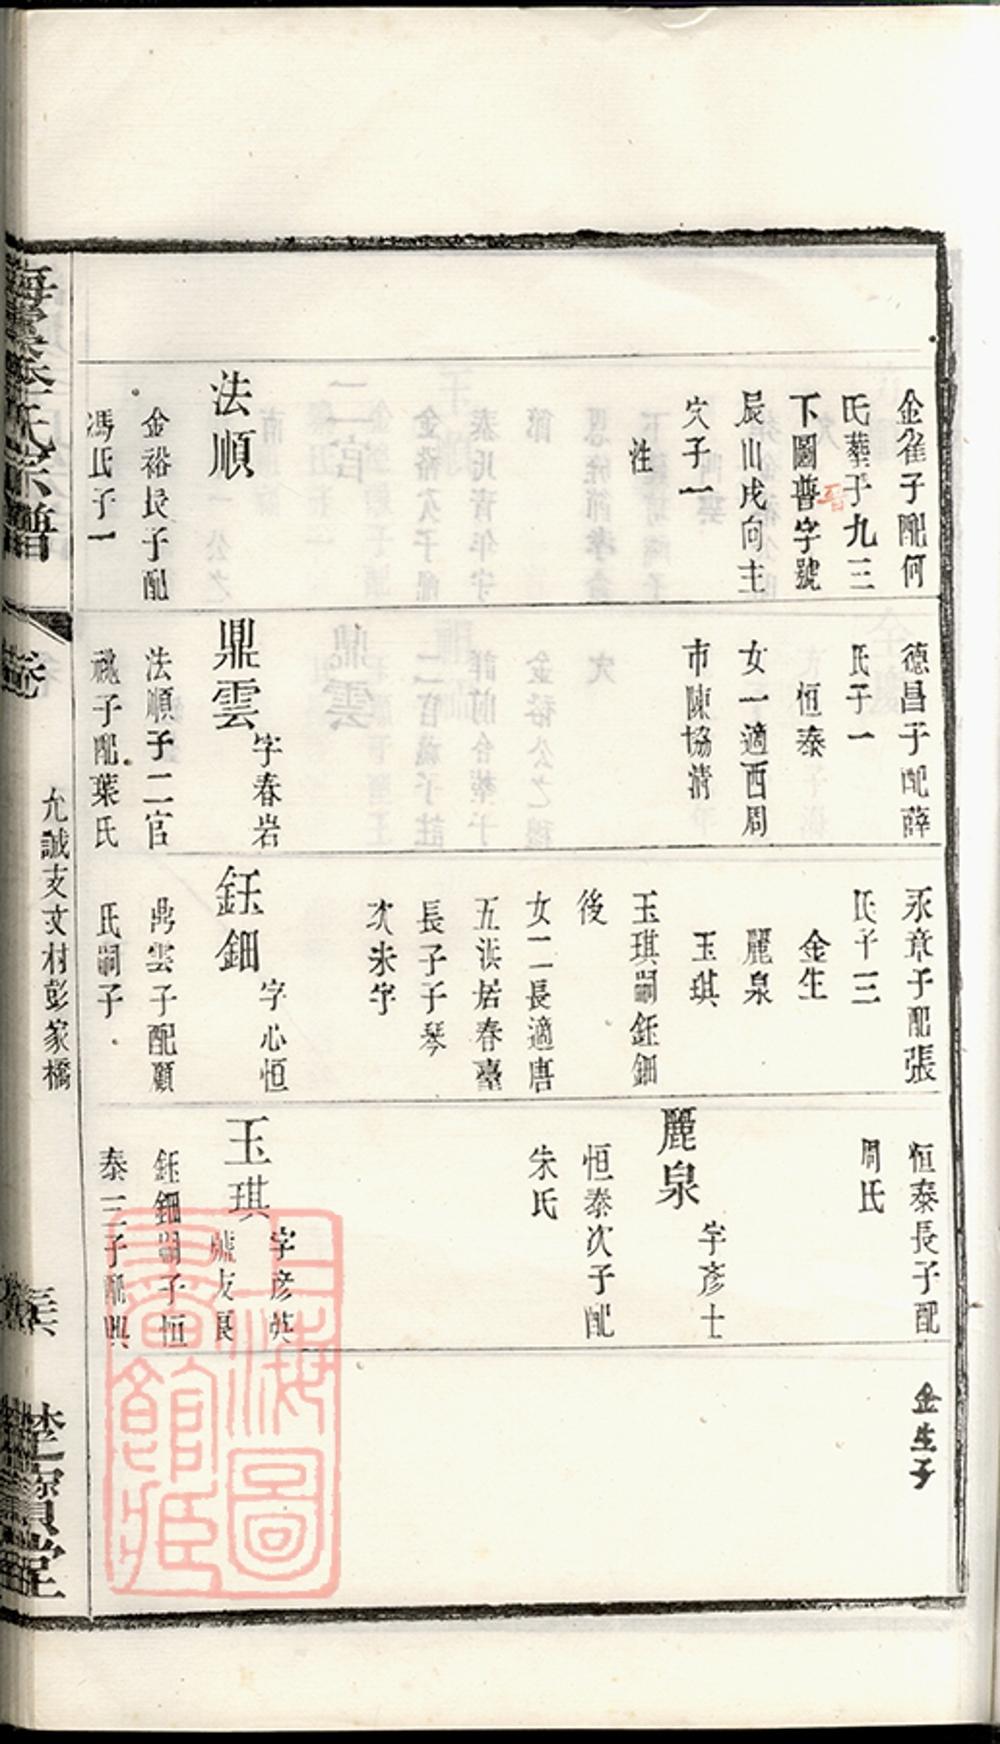 金雀子配何
氏葬于九三
下圖普字號
辰山戌向主
穴子一
法順
金裕長子配
馮氏子一
德昌子配薛
氏子一
恒泰
女一適西周
市陳協清
鼎雲
字春岩
法順子二官
祧子配葉氏
永章子配張
氏子三
金生
麗泉
玉琪
玉琪嗣鈺鈿
後
女二長適唐
五浜居春臺
長子子琴
次未字
鈺鈿
字心恒
鼎雲子配顧
氏嗣子
恒泰長子配
周氏
麗泉
字彥士
恒泰次子配
朱氏
玉琪
字彥英
號友良
鈺鈿嗣子恒
泰三子配
金生子
氏宗譜
允誠支文材彭家橋
楚寶堂
上海圖書館藏